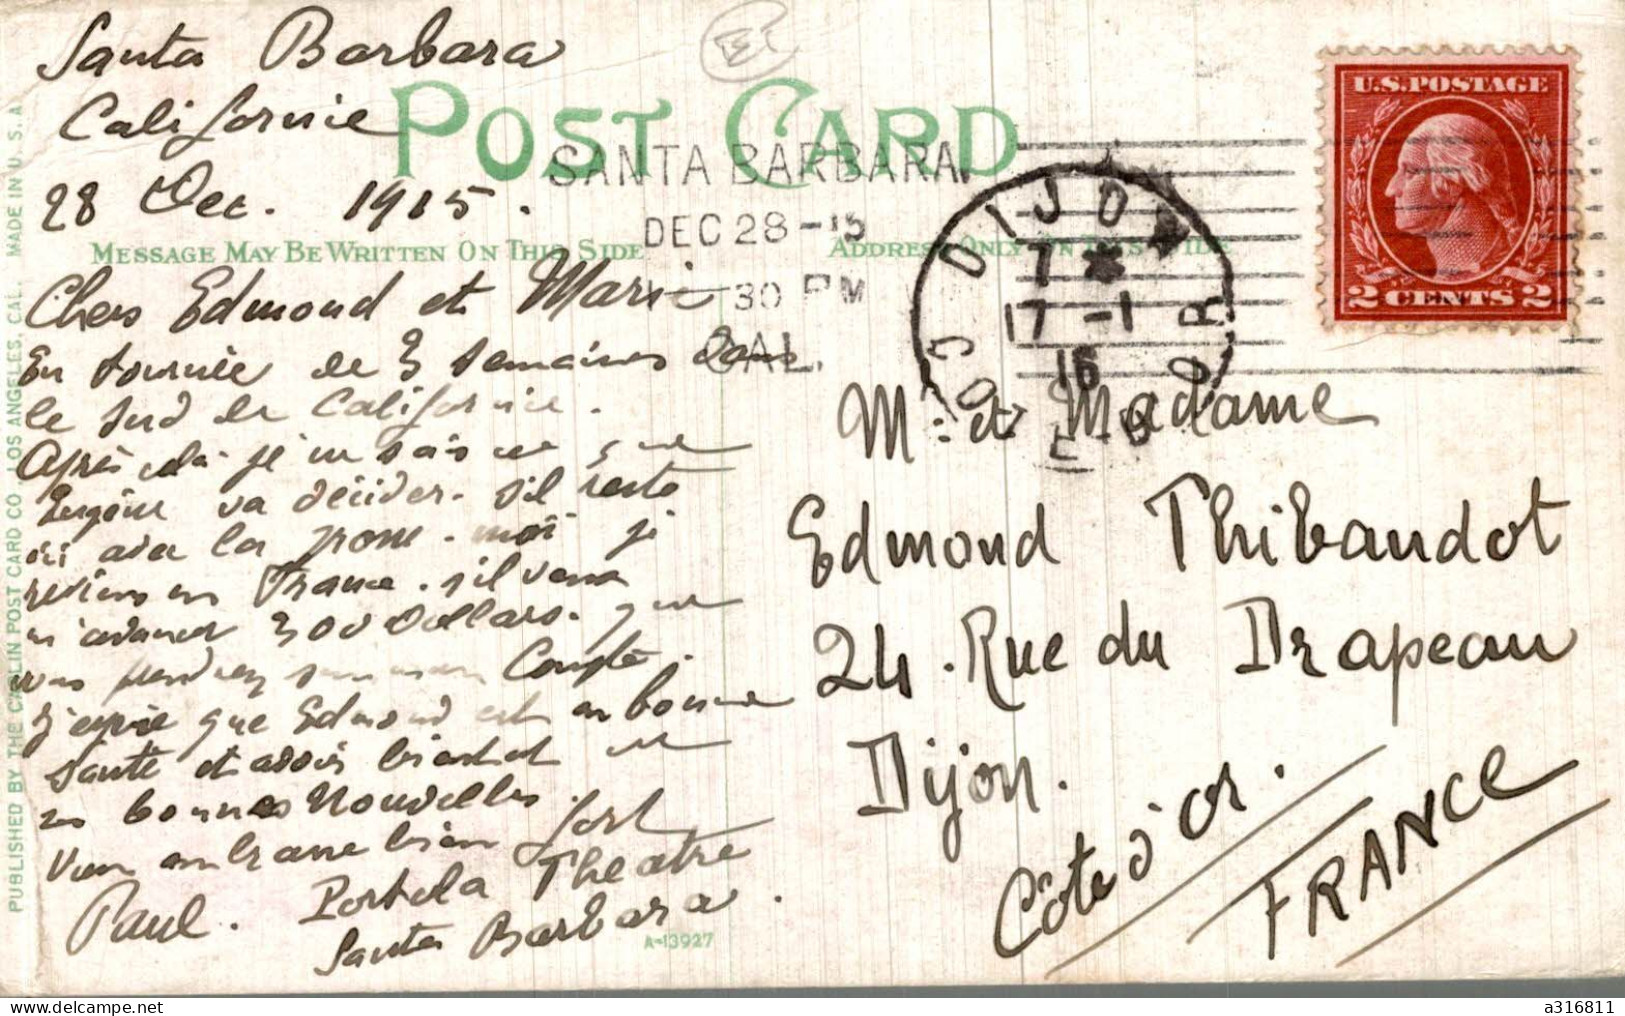 Santa Barbara
Californie
28 Dec. 1915.
POST CARD
SANTA BARBARA,
DEC 28 -15
30 PM
CAL.
MESSAGE MAY BE WRITTEN ON THIS SIDE
ADDRESS ONLY ON THIS SIDE
Chers Edmond et Marie
En tournée de 3 semaines dans
le sud de Californie.
Après cela je ne sais ce que
va décider. s'il reste
ici avec la je
reviens en France. s'il veut
m'avancer 300 Dollars. que
vous prendrez sur mon Compte.
J'espère que Edmond est en bonne
santé et avoir bientôt de
ses bonnes Nouvelles.
Vous embrasse bien fort
Paul. Portola Theatre
Santa Barbara.
A-13927
PUBLISHED BY THE CARLIN POST CARD CO. LOS ANGELES, CAL. MADE IN U.S.A.
U.S. POSTAGE
2 CENTS 2
DIJON
7 *
17 -1
16
COTE D'OR
Mr et Madame
Edmond Thibaudot
24. Rue du Drapeau
Dijon.
Côte d'Or.
FRANCE
a316811